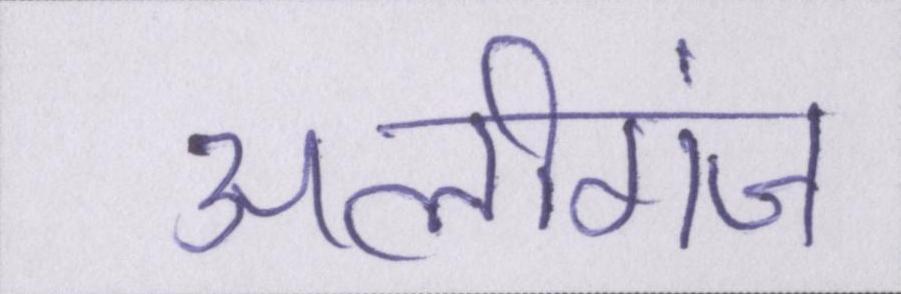 अलीगंज